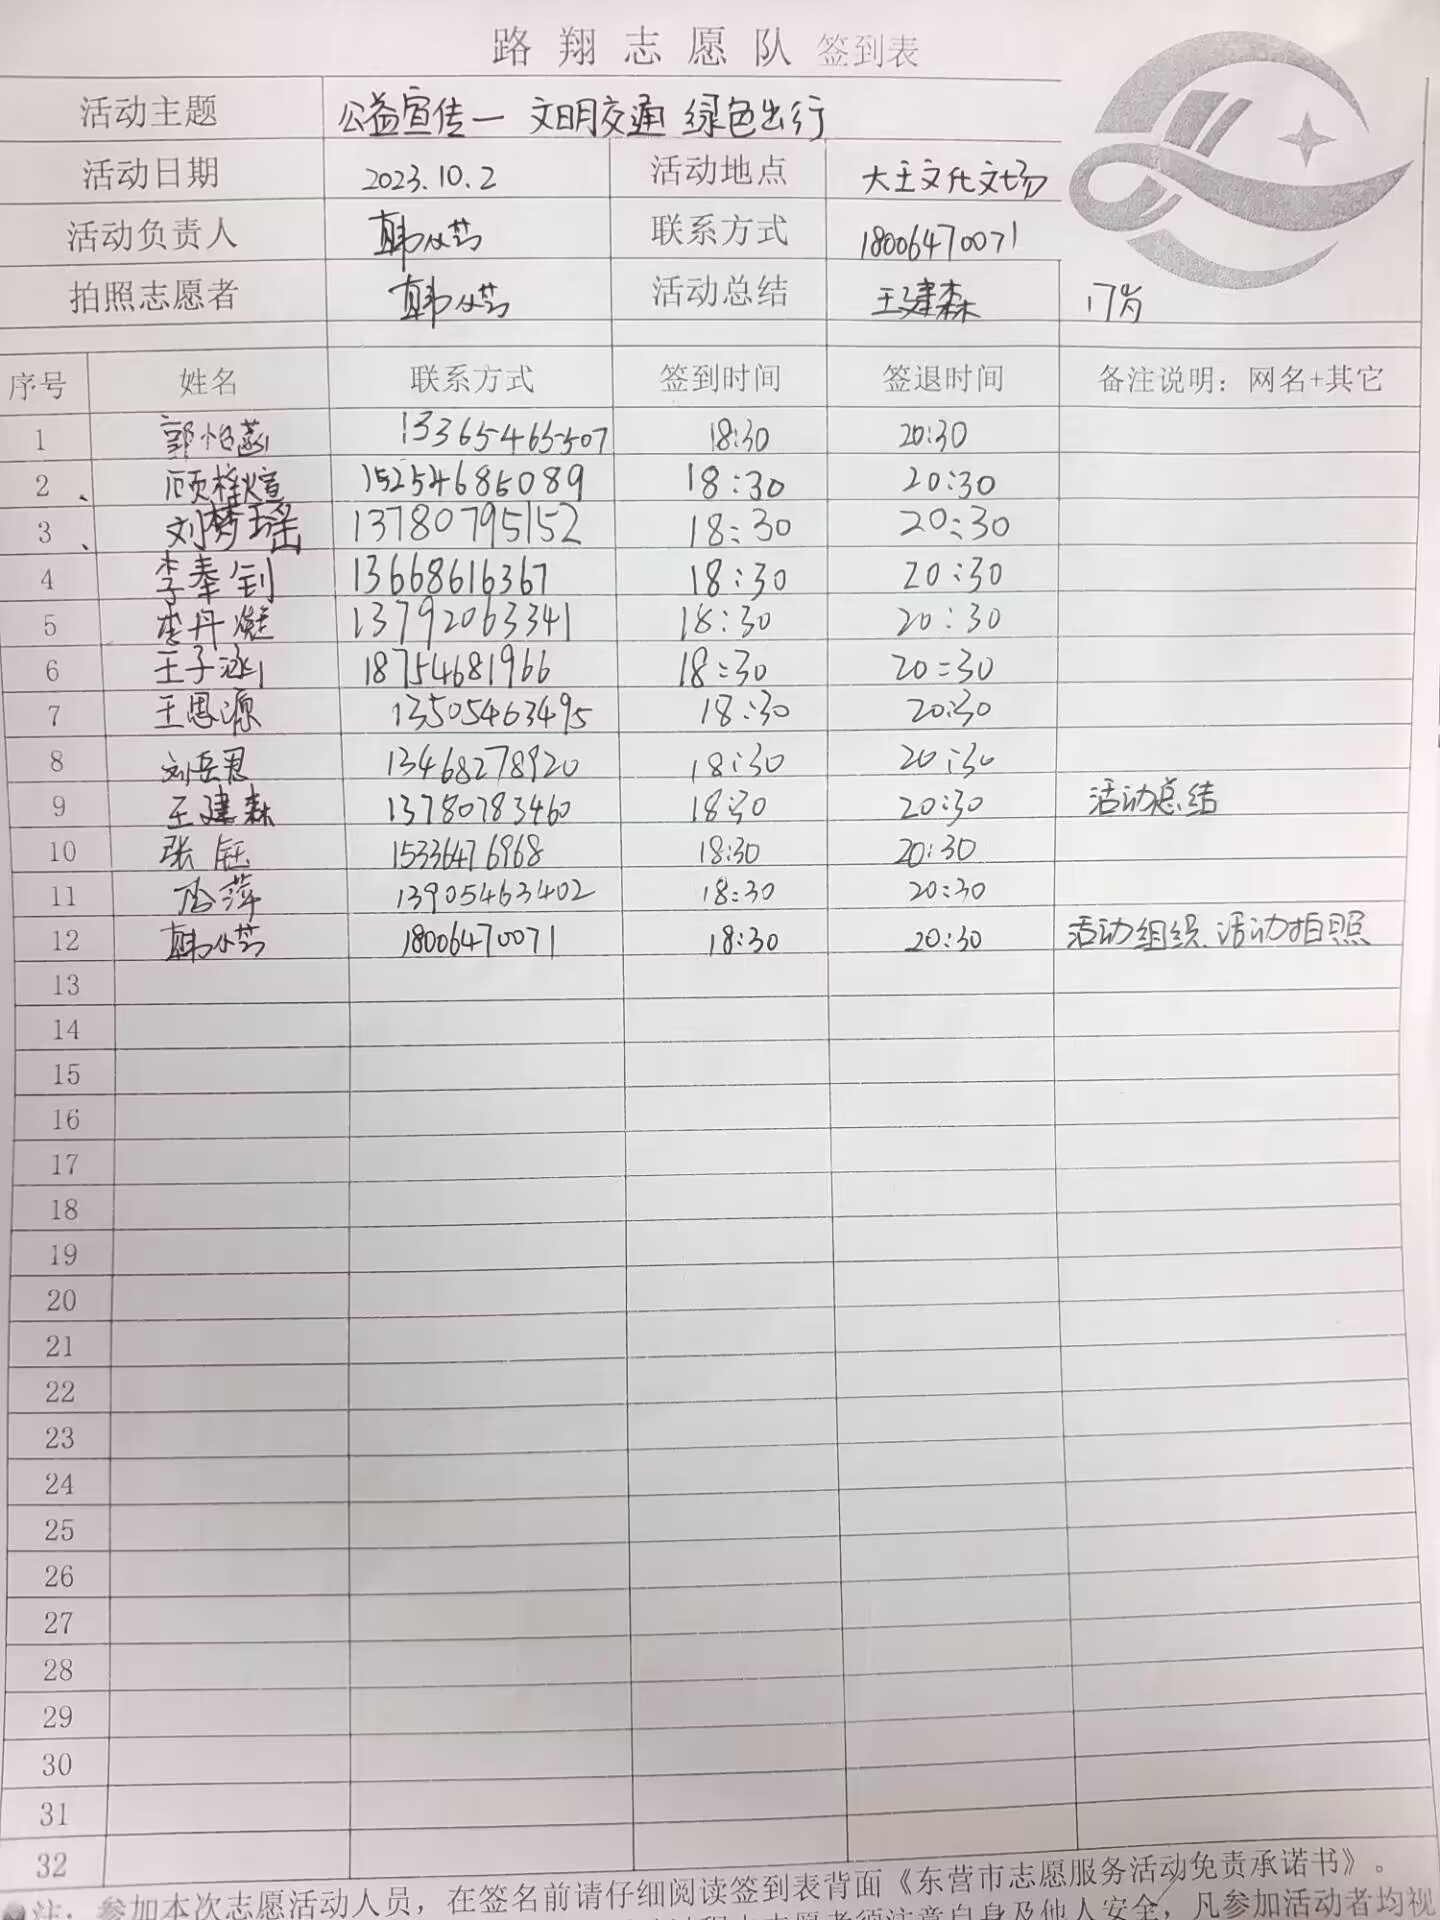 路翔志愿队 签到表
活动主题 公益宣传一 文明交通 绿色出行
活动日期 2023.10.2 活动地点 大王文化文场
活动负责人 韩 联系方式 18006470071
拍照志愿者 韩 活动总结 王建森 17岁
序号 姓名 联系方式 签到时间 签退时间 备注说明：网名+其它
1 郭怡蕊 13365465507 18:30 20:30
2 顾梓煊 15254686089 18:30 20:30
3 刘梦瑶 13780795152 18:30 20:30
4 李奉钊 13668616367 18:30 20:30
5 李丹凝 13792063341 18:30 20:30
6 王子涵 18754681966 18:30 20:30
7 王思源 13505463495 18:30 20:30
8 刘岳君 13468278920 18:30 20:30
9 王建森 13780783460 18:30 20:30 活动总结
10 张钰 15336476968 18:30 20:30
11 萍 13905463402 18:30 20:30
12 韩 18006470071 18:30 20:30 活动组织、活动拍照
13
14
15
16
17
18
19
20
21
22
23
24
25
26
27
28
29
30
31
32
注：参加本次志愿活动人员，在签名前请仔细阅读签到表背面《东营市志愿服务活动免责承诺书》。
志愿者须注意自身及他人安全，凡参加活动者均视